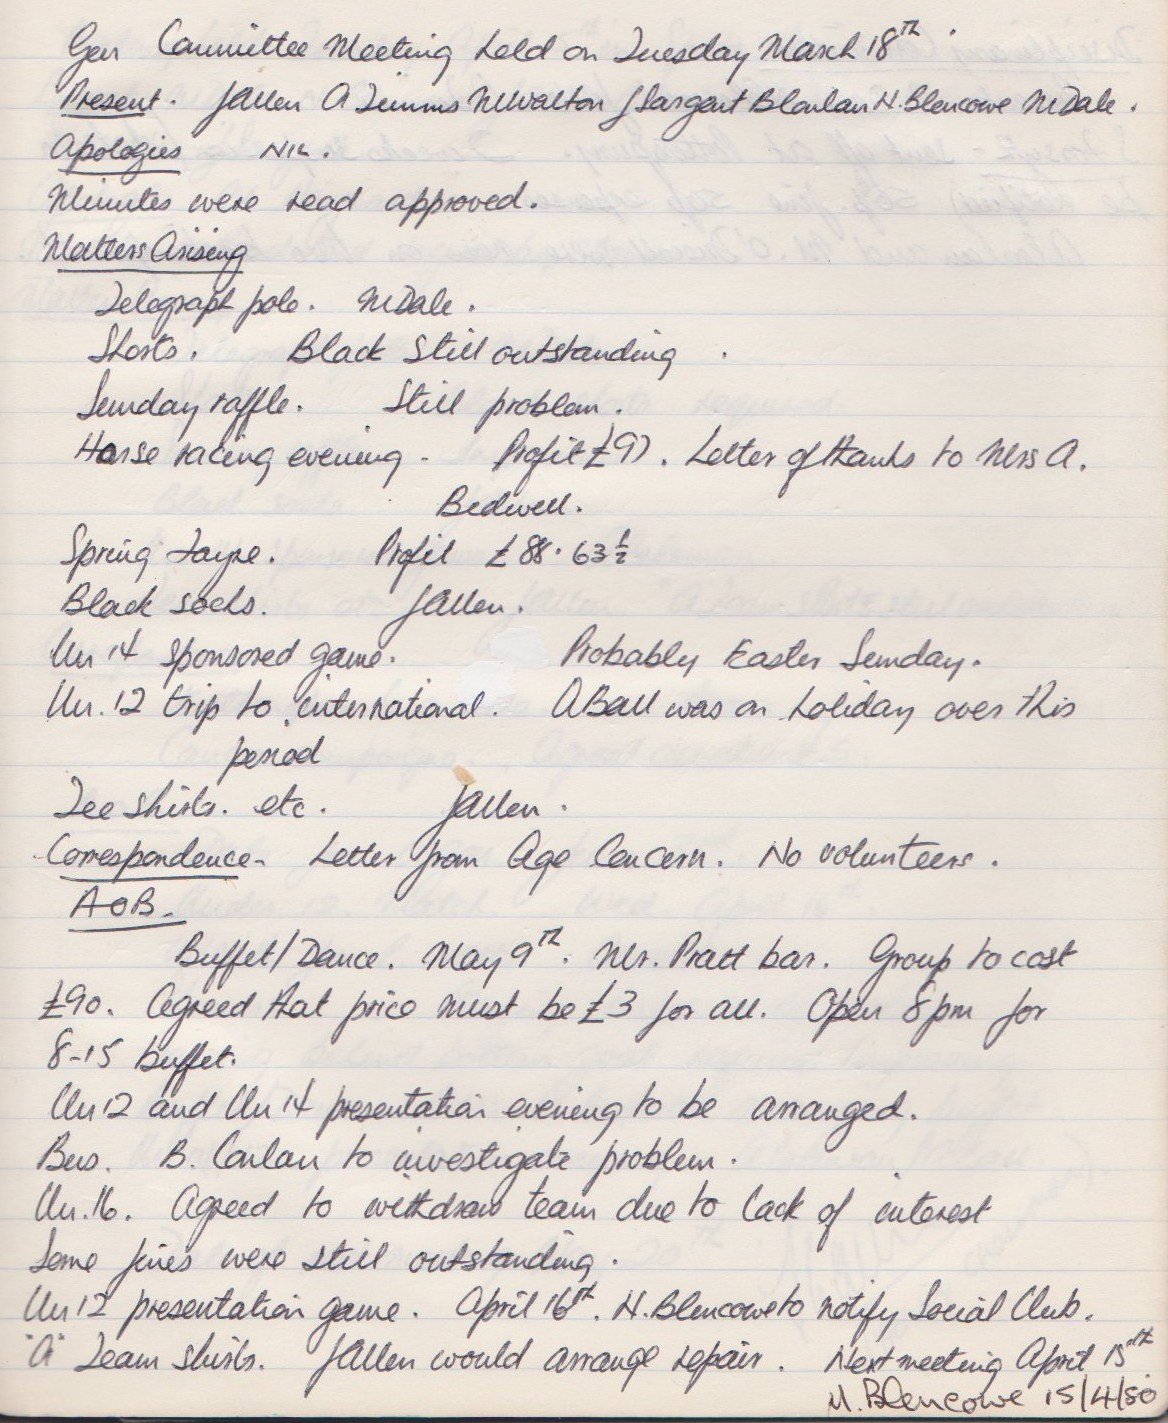 Gen Committee Meeting held on Tuesday March 18TH
Present. J Allen A Timms M Walton J Sargent B Conlan N. Blencowe M Dale.
Apologies NIL.
Minutes were read approved.
Matters Arising
Telegraph pole. M Dale.
Shorts. Black still outstanding.
Sunday raffle. Still problem.
Horse racing evening - Profit £97. Letter of thanks to Mrs A.
Bedwell.
Spring Fayre. Profit £88.63½
Black socks. J Allen.
Un 14 sponsored game. Probably Easter Sunday.
Un. 12 trip to international. A Ball was on holiday over this
period
Tee shirts. etc. J Allen.
Correspondence - Letter from Age Concern. No volunteers.
A O B.
Buffet/Dance. May 9TH. Mr. Pratt bar. Group to cost
£90. Agreed that price must be £3 for all. Open 8pm for
8-15 buffet.
Un 12 and Un 14 presentation evening to be arranged.
Bus. B. Conlan to investigate problem.
Un. 16. Agreed to withdraw team due to lack of interest
Some fines were still outstanding.
Un 12 presentation game. April 16th. N. Blencowe to notify Social Club.
"A" Team shirts. J Allen would arrange repair. Next meeting April 15th
N. Blencowe 15/4/80